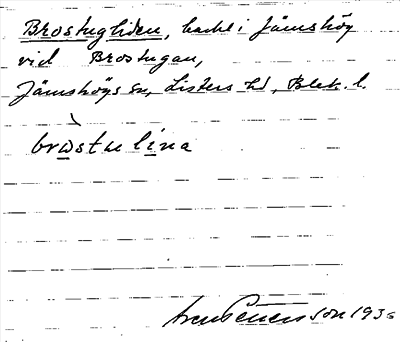 Brostugliden, backe i Jämshög
vid Brostugan,
Jämshögs sn, Listers hd, Blek. l.
bròstulina
Pettersson 1936